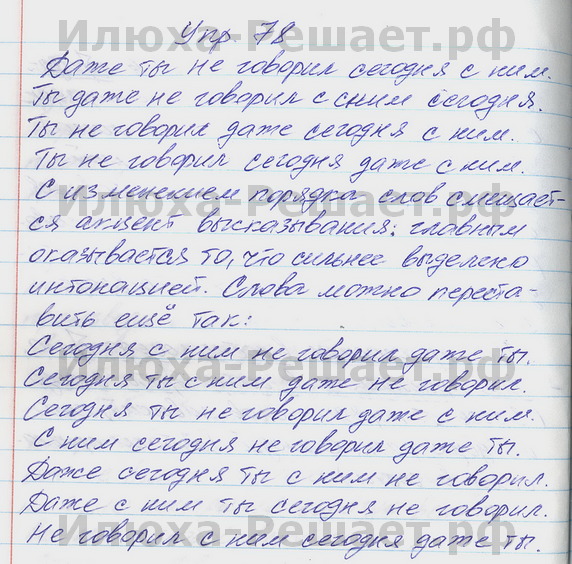 Упр 78
Даже ты не говорил сегодня с ним.
Ты даже не говорил с сним сегодня.
Ты не говорил даже сегодня с ним.
Ты не говорил сегодня даже с ним.
С изменением порядка слов смещает-
ся акцент высказывания: главным
оказывается то, что сильнее выделено
интонацией. Слова можно переста-
вить ещё так:
Сегодня с ним не говорил даже ты.
Сегодня ты с ним даже не говорил.
Сегодня ты не говорил даже с ним.
С ним сегодня не говорил даже ты.
Даже сегодня ты с ним не говорил.
Даже с ним ты сегодня не говорил.
Не говорил с ним сегодня даже ты.
Илюха-Решает.рф
Илюха-Решает.рф
Илюха-Решает.рф
Илюха-Решает.рф
Илюха-Решает.рф
Илюха-Решает.рф